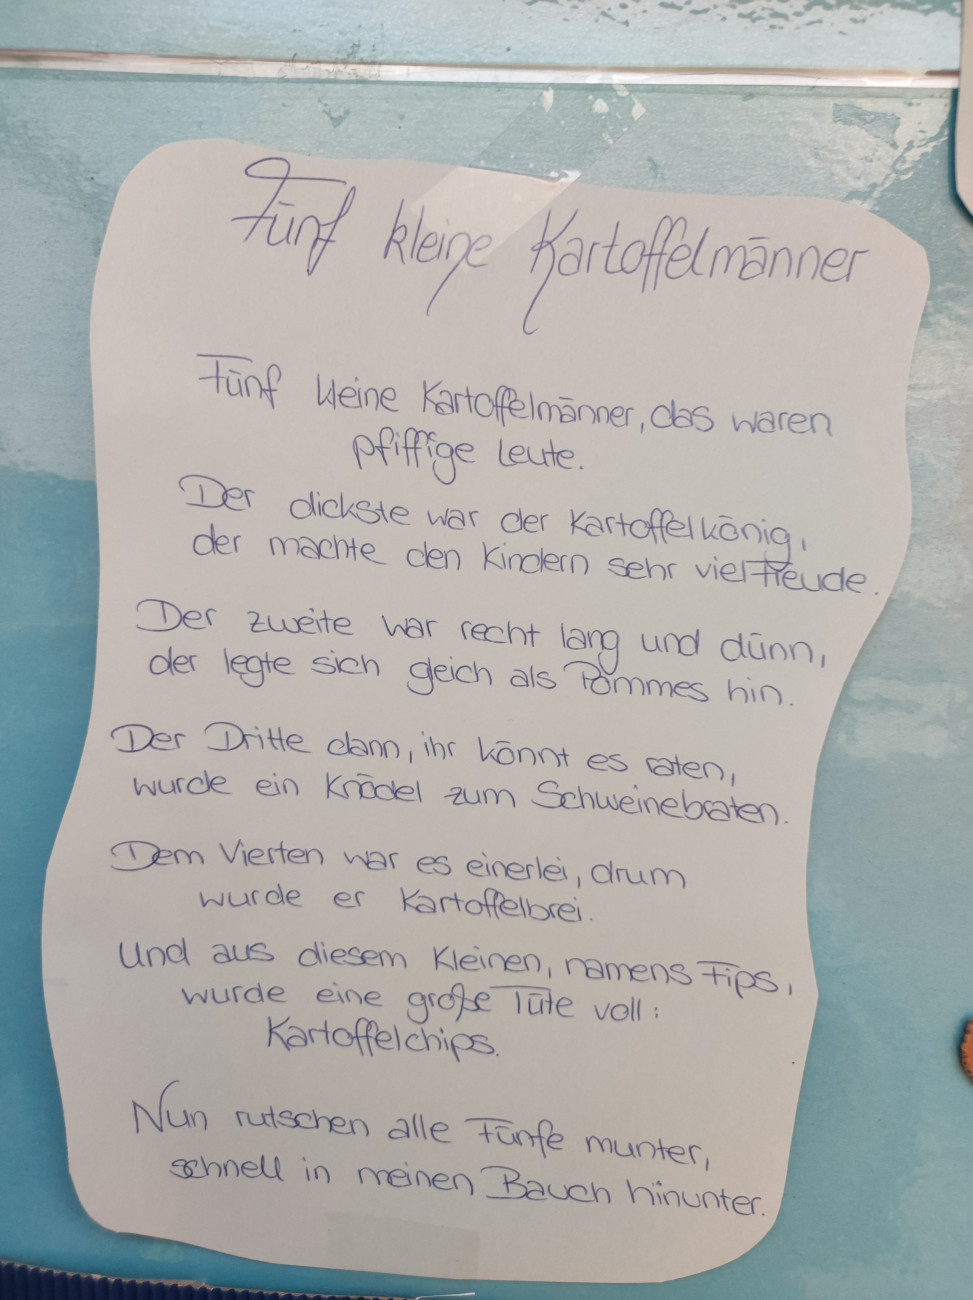 Fünf kleine Kartoffelmänner
Fünf kleine Kartoffelmänner, das waren
pfiffige Leute.
Der dickste war der Kartoffelkönig,
der machte den Kindern sehr viel Freude.
Der zweite war recht lang und dünn,
der legte sich gleich als Pommes hin.
Der Dritte dann, ihr könnt es raten,
wurde ein Knödel zum Schweinebraten.
Dem Vierten war es einerlei, drum
wurde er Kartoffelbrei.
Und aus diesem Kleinen, namens Fips,
wurde eine große Tüte voll:
Kartoffelchips.
Nun rutschen alle Fünfe munter,
schnell in meinen Bauch hinunter.